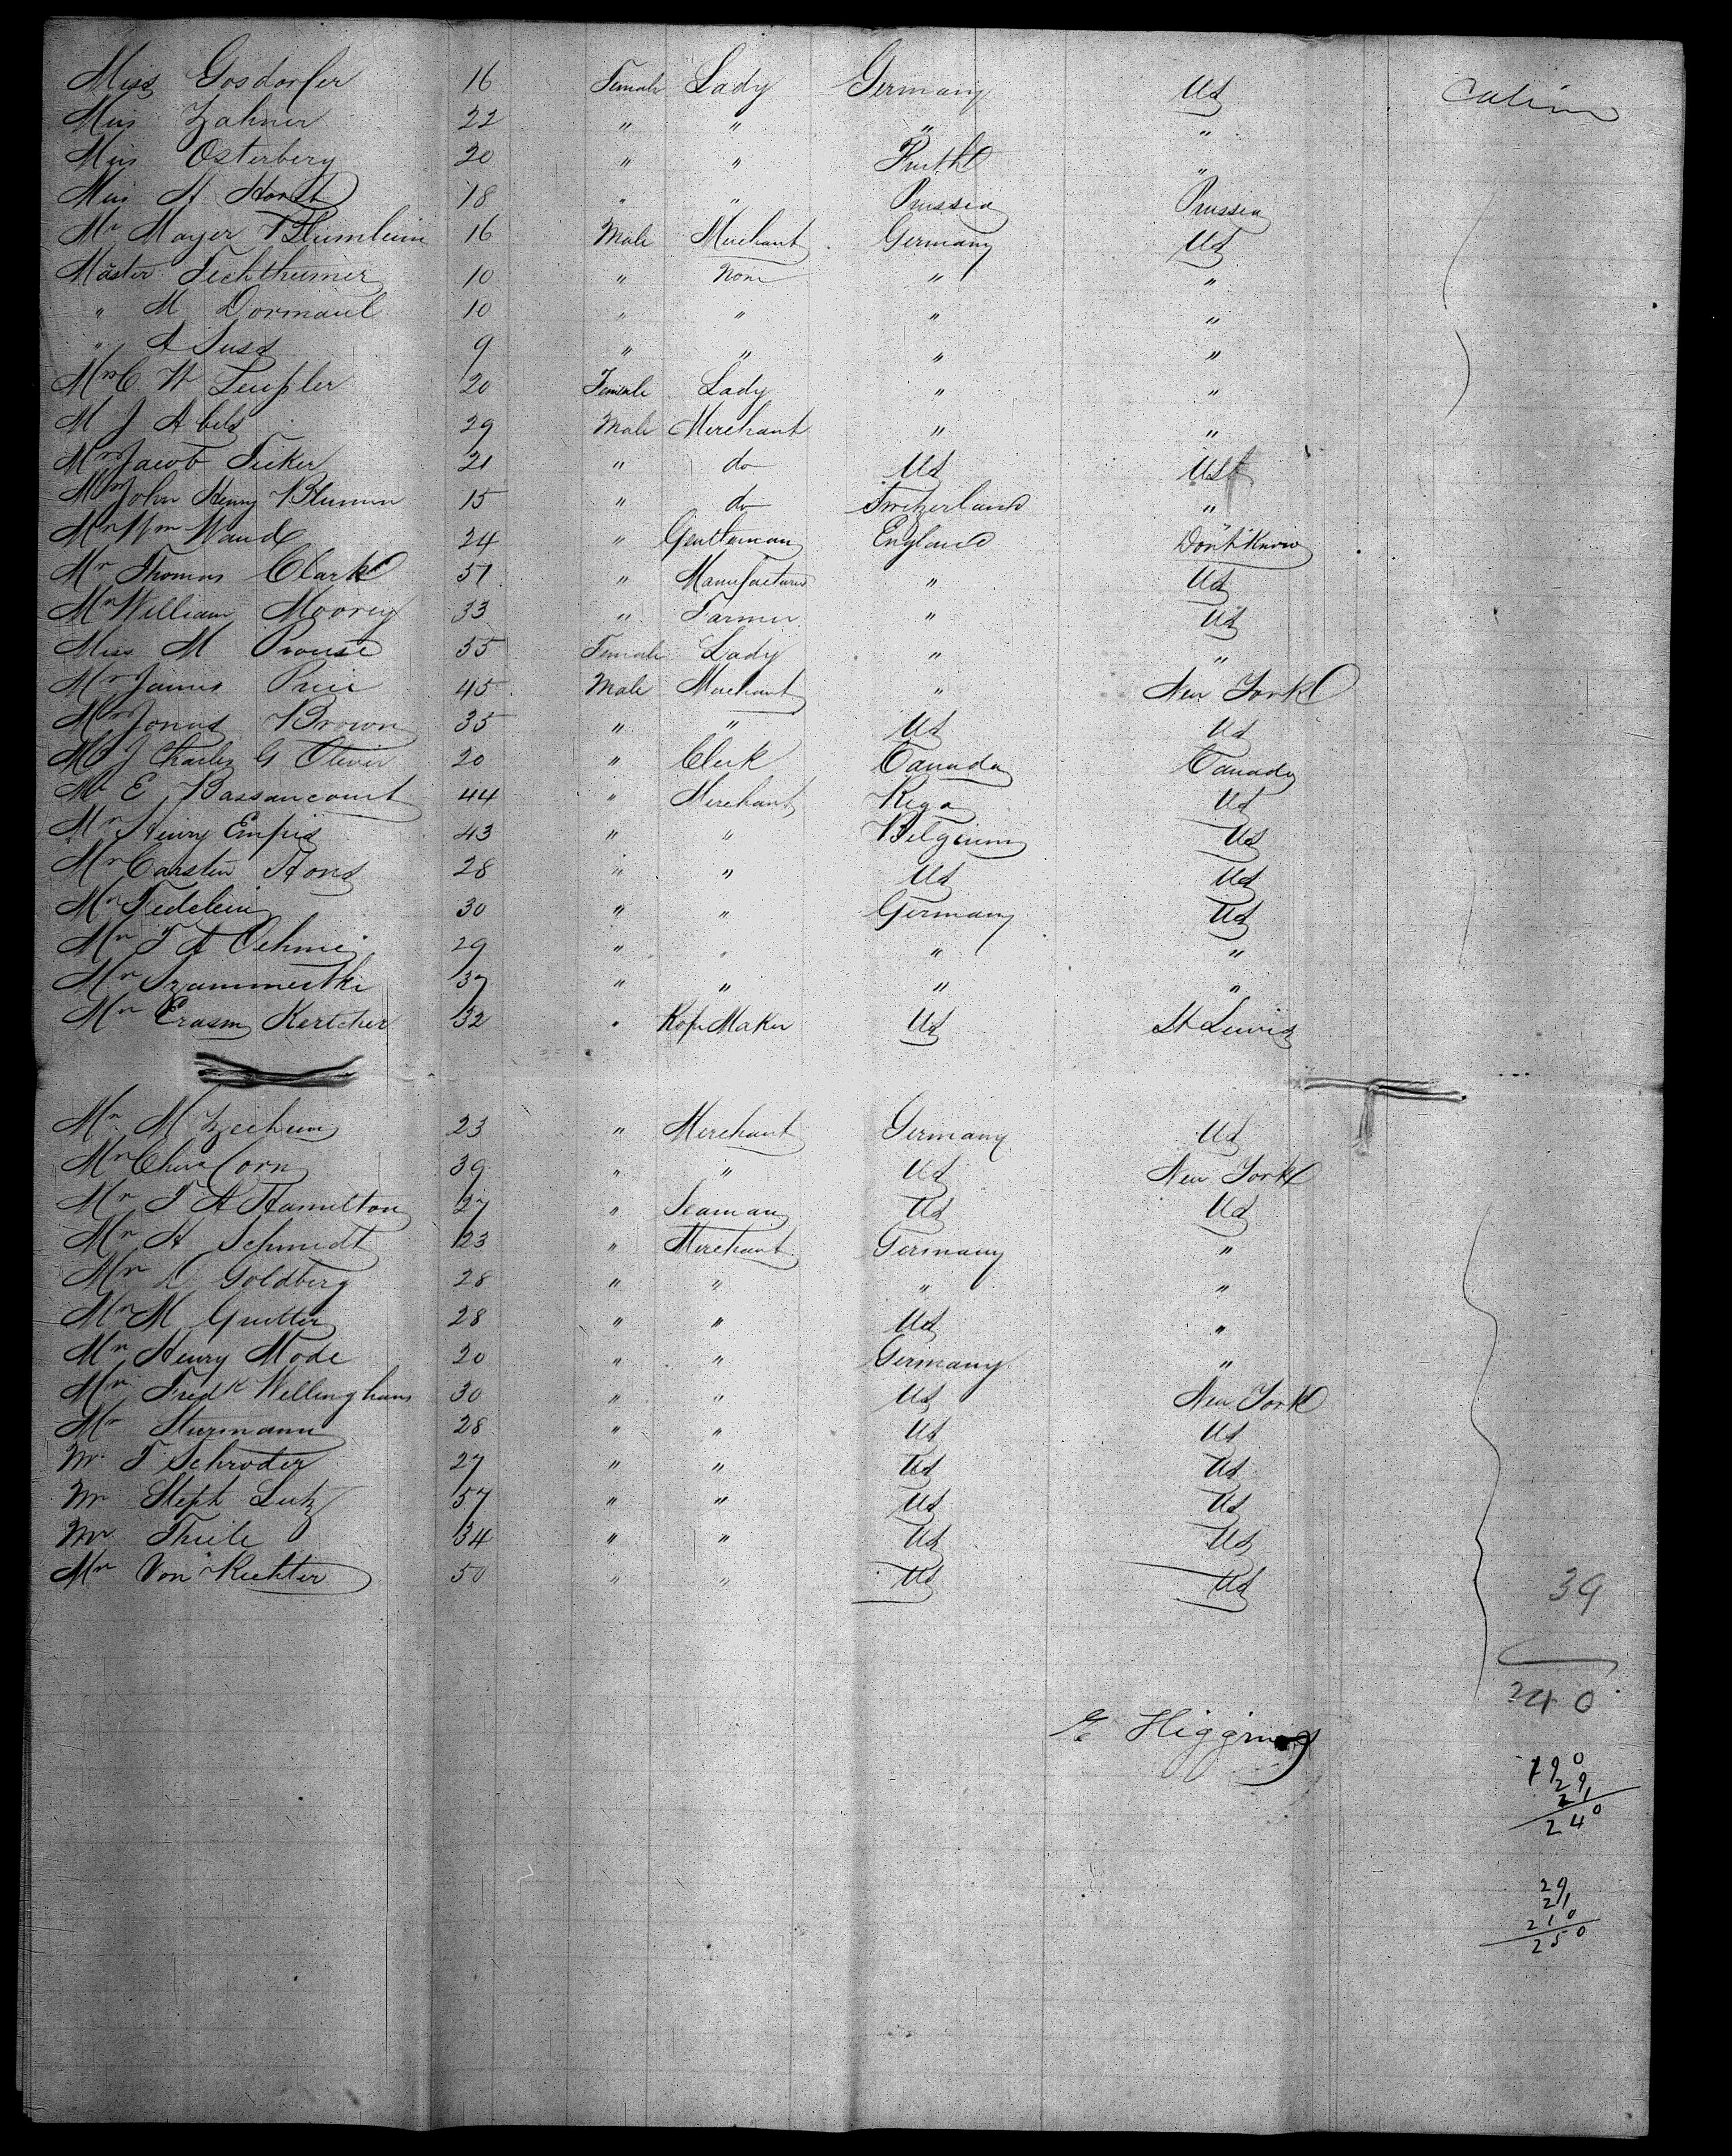 Miss Gosdorfer 16 Female Lady Germany US Cabin
Miss Zahner 22 " " " "
Miss Osterberg 20 " " "
Miss A Horst 18 " " Prussia Prussia
Mr Mayer Blumlein 16 Male Merchant Germany US
Master Fechtheimer 10 " None " "
" M Dormaul 10 " " " "
" A Suss 9 " " " "
Mrs C W Teupler 20 Female Lady " "
M J Abels 29 Male Merchant " "
Mr Jacob Ticker 21 " do US US
Mr John Henry Blumm 15 " do Switzerland "
Mr Wm Wand 24 " Gentleman England Don't Know
Mr Thomas Clark 51 " Manufacturer " US
Mr William Moorey 33 " Farmer " US
Miss M Prouse 55 Female Lady " "
Mr James Price 45 Male Merchant " New York
Mr Jonas Brown 35 " " US US
Mr J Charles G Oliver 20 " Clerk Canada Canada
Mr E Bassancourt 44 " Merchant Riga US
Mr Henry Empis 43 " " Belgium US
Mr Carsten Hons 28 " " US US
Mr Fedelein 30 " " Germany US
Mr T A Oehme 29 " " " "
Mr 37 " " " "
Mr Erasm Kertcher 32 " Rope Maker US St Luwis
Mr M 23 " Merchant Germany US
Mr Corn 39 " " US New York
Mr T A Hamilton 27 " Seaman US US
Mr H Schmidt 23 " Merchant Germany "
Mr D Goldberg 28 " " " "
Mr M Grutter 28 " " US "
Mr Henry Mode 20 " " Germany "
Mr Fredk Wellinghans 30 " " US New York
Mr Sturmann 28 " " US US
Mr T Schroder 27 " " US US
Mr Steph Lutz 57 " " US US
Mr Thiele 34 " " US US
Mr Von Richter 50 " " US US
39
240
E Higgins
190
29
21
240
29
21
210
250